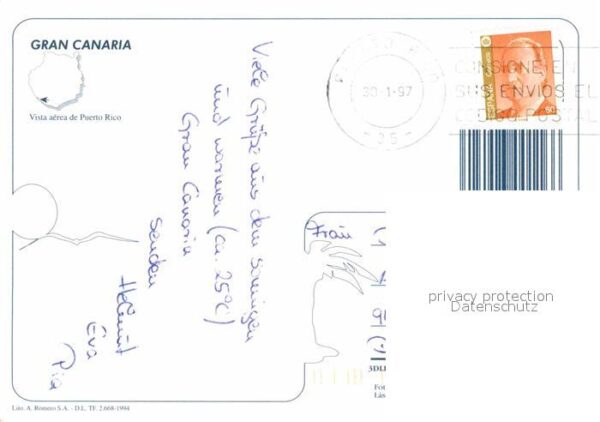 GRAN CANARIA
Vista aérea de Puerto Rico
Viele Grüße aus dem sonnigen
und warmen (ca. 25°C)
Gran Canaria
senden
Helmut
Eva
Pia
30-1-97
CONSIGNE EN
SUS ENVIOS EL
CODIGO POSTAL
ESPAÑA
60
privacy protection
Datenschutz
Lito. A. Romero S.A. - D.L. TF. 2.668-1994